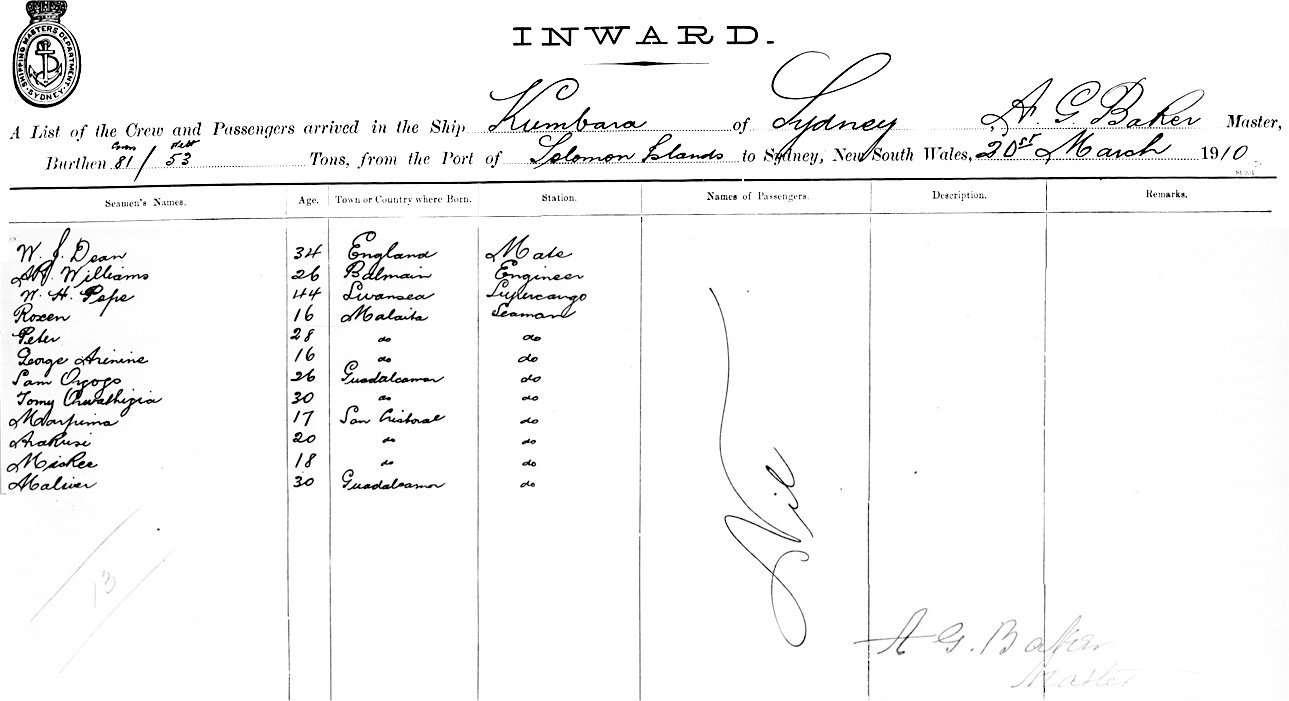 SHIPPING MASTERS DEPARTMENT SYDNEY
INWARD.
A List of the Crew and Passengers arrived in the Ship Kumbara of Sydney A. G Baker Master,
Burthen Gross 81 / Nett 53 Tons, from the Port of Solomon Islands to Sydney, New South Wales, 20st March 1910
Seamen's Names. Age. Town or Country where Born. Station. Names of Passengers. Description. Remarks.
W. J. Dean 34 England Mate
Williams 26 Balmain Engineer
W. H. Pepe 44 Swansea Supercargo
Roxen 16 Malaita Seaman
Peter 28 do do
George Arinine 16 do do
Sam Oyogo 26 Guadalcanar do
Tomy 30 do do
Marpima 17 San Cristoval do
Arakusi 20 do do
Mickee 18 do do
Maliver 30 Guadalcanar do
Nil
13
A G. Baker
Master